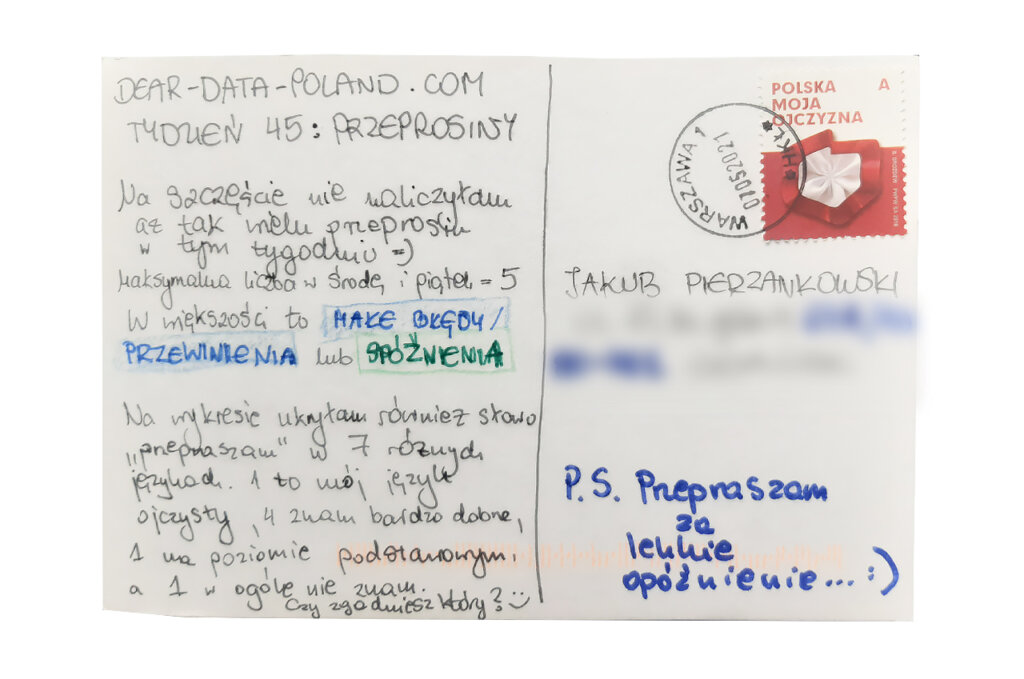 DEAR-DATA-POLAND.COM
TYDZIEŃ 45: PRZEPROSINY
Na szczęście nie naliczyłam
aż tak wielu przeprosin
w tym tygodniu =)
Maksymalna liczba w środę i piątek = 5
W większości to MAŁE BŁĘDY/
PRZEWINIENIA lub SPÓŹNIENIA
Na wykresie ukryłam również słowo
„przepraszam" w 7 różnych
językach. 1 to mój język
ojczysty, 4 znam bardzo dobrze,
1 na poziomie podstawowym,
a 1 w ogóle nie znam.
Czy zgadniesz który? :)
POLSKA A
MOJA
OJCZYZNA
WARSZAWA 1
07052021
JAKUB PIERZANKOWSKI
P.S. Przepraszam
za
lekkie
opóźnienie... :)